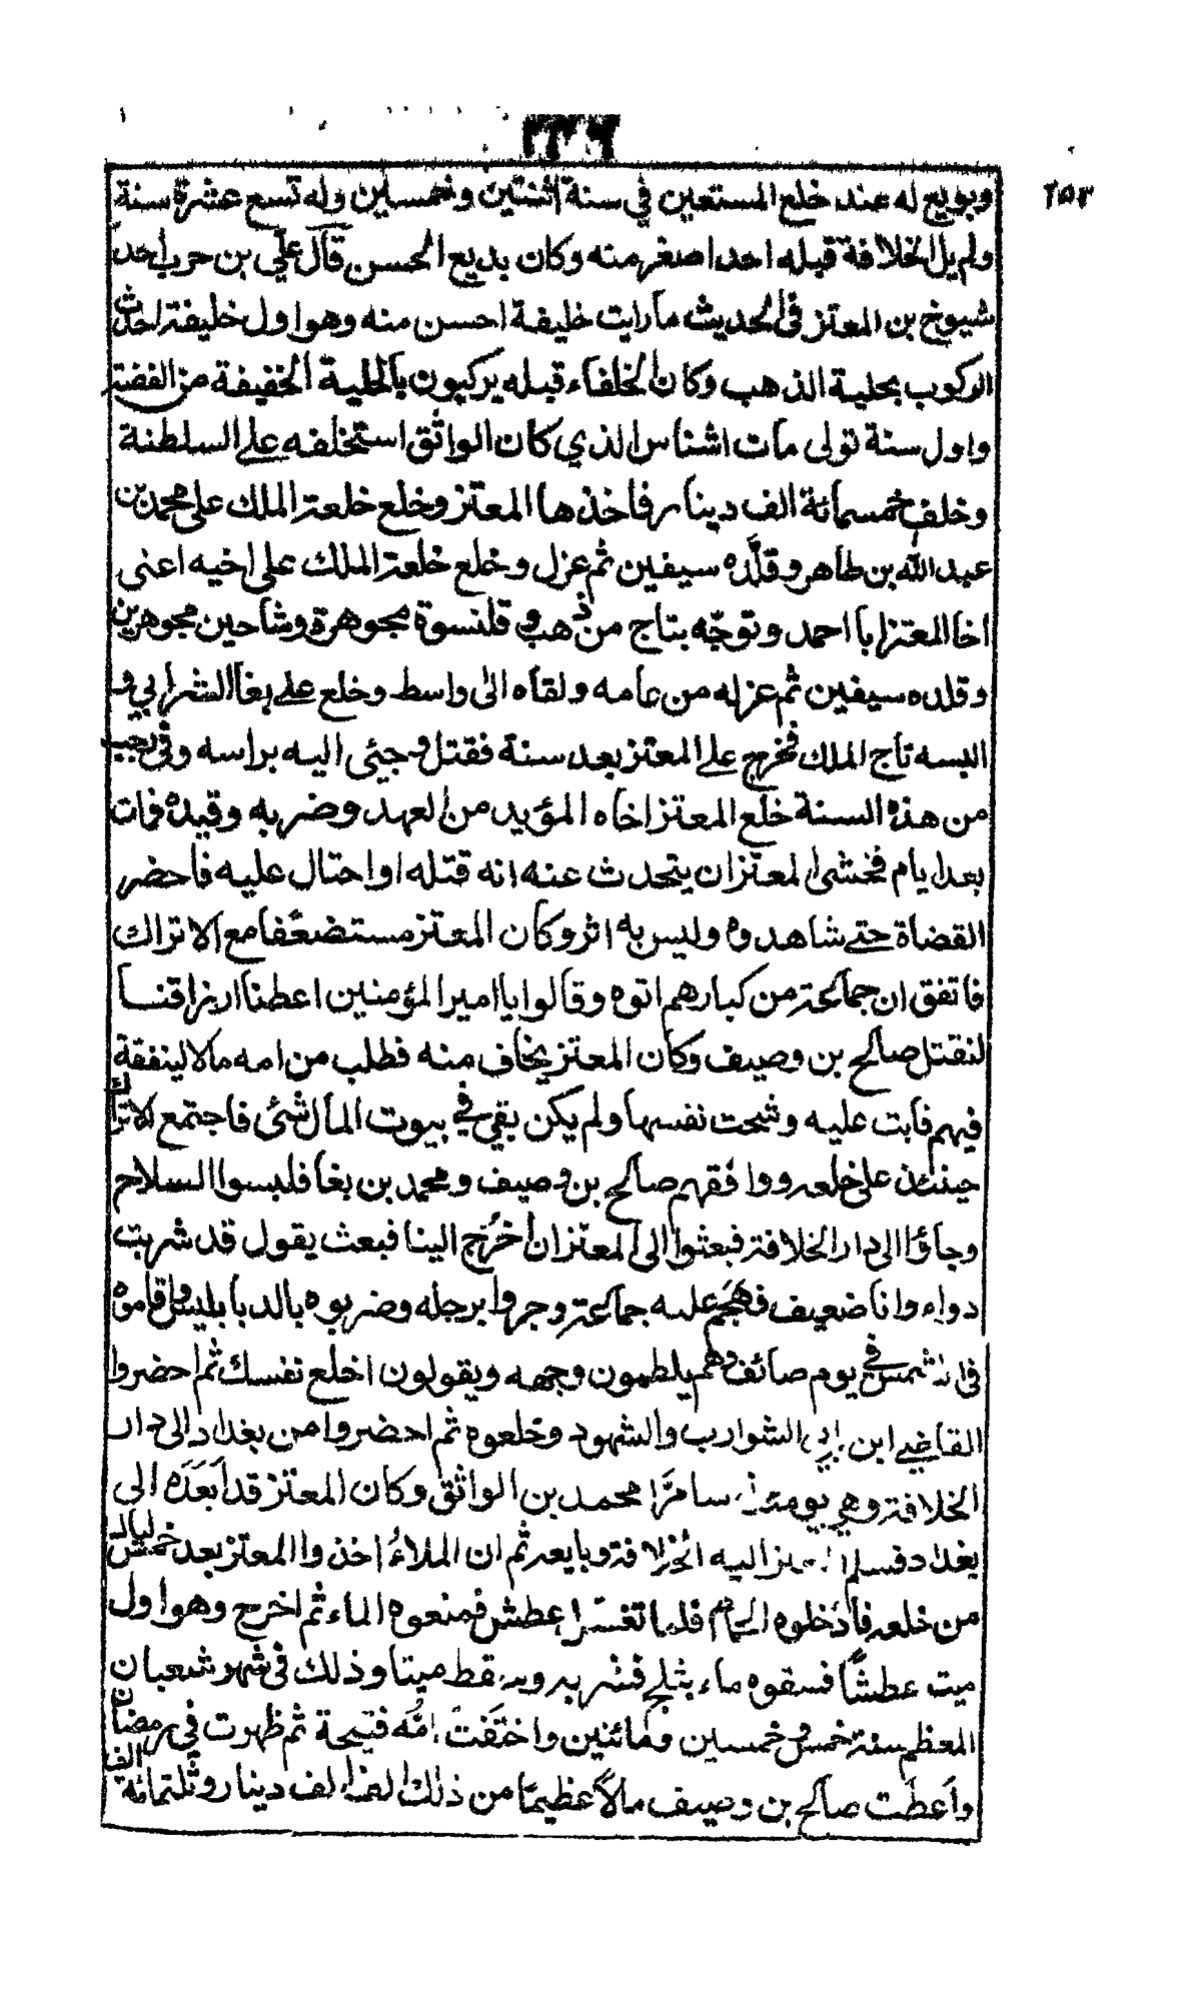 ٢٥٣
وبويع له عند خلع المستعين في سنة اثنتين وخمسين وله تسع عشرة سنة
ولم يل الخلافة قبله احدا صغر منه وكان بديع الحسن قال علي بن حرب احد
شيوخ بن المعتز في الحديث ما رايت خليفة احسن منه وهو اول خليفة احدث
الركوب بحلية الذهب وكان الخلفاء قبله يركبون بالحلية الخفيفة من الفضة
واول سنة تولى مات اشناس الذي كان الواثق استخلفه على السلطنة
وخلف خمسمائة الف دينار فاخذها المعتز وخلع خلعة الملك على محمد بن
عبد الله بن طاهر وقلّده سيفين ثم عزل وخلع خلعة الملك على اخيه اعنى
اخا المعتز ابا احمد وتوجّه بتاج من ذهب و قلنسوة مجوهرة وشاحين مجوهرين
وقلده سيفين ثم عزله من عامه ولقاه الى واسط وخلع على بغا الشرابي و
البسه تاج الملك فخرج على المعتز بعد سنة فقتل وجيئى اليه براسه وفي رجب
من هذه السنة خلع المعتز اخاه المؤيد من العهد وضربه وقيده فمات
بعد ايام فخشى المعتز ان يتحدث عنه انه قتله او احتال عليه فاحضر
القضاة حتى شاهدوه وليس به اثر وكان المعتز مستضعفا مع الاتراك
فاتفق ان جماعة من كبارهم اتوه وقالوا يا امير المؤمنين اعطنا ارزاقنا
لنقتل صالح بن وصيف وكان المعتز يخاف منه فطلب من امه مالا لينفقه
فيهم فابت عليه وشحت نفسها ولم يكن بقي في بيوت المال شئ فاجتمع الاتراك
حينئذ على خلعه ووافقهم صالح بن وصيف ومحمد بن بغا فلبسوا السلاح
وجاؤا الى دار الخلافة فبعثوا الى المعتز ان اخرج الينا فبعث يقول قد شربت
دواء وانا ضعيف فهجم عليه جماعة وجروا برجله وضربوه بالدبابيس واقاموه
في الشمس في يوم صائف وهم يلطمون وجهه ويقولون اخلع نفسك ثم احضروا
القاضي ابن ابي الشوارب والشهود وخلعوه ثم احضروا من بغداد الى دار
الخلافة وهي يومئذ سامرّا محمد بن الواثق وكان المعتز قد ابعده الى
بغداد فسلم المعتز اليه الخلافة وبايعه ثم ان الملاء اخذوا المعتز بعد خمس ليال
من خلعه فادخلوه الحمام فلما تغسّل عطش فمنعوه الماء ثم اخرج وهو اول
ميت عطشًا فسقوه ماء بثلج فشربه وسقط ميتا وذلك في شهر شعبان
المعظم سنة خمس وخمسين ومائتين واختفت امّه قبيحة ثم ظهرت في رمضان
واعطت صالح بن وصيف مالا عظيمًا من ذلك الف الف دينار وثلثمائة الف